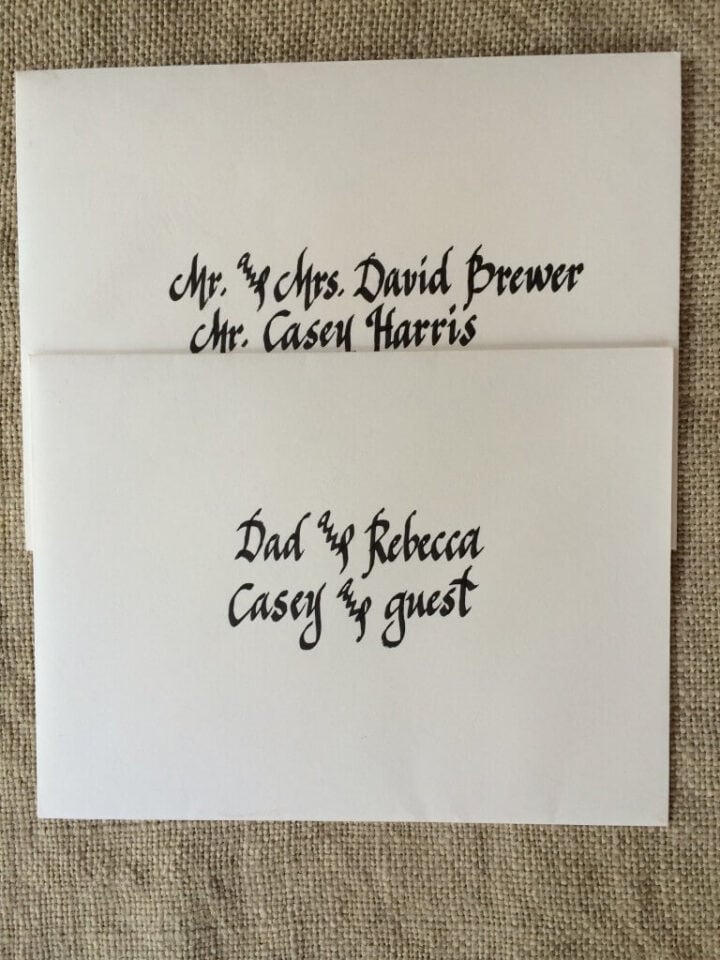 Mr. and Mrs. David Brewer
Mr. Casey Harris
Dad and Rebecca
Casey and guest